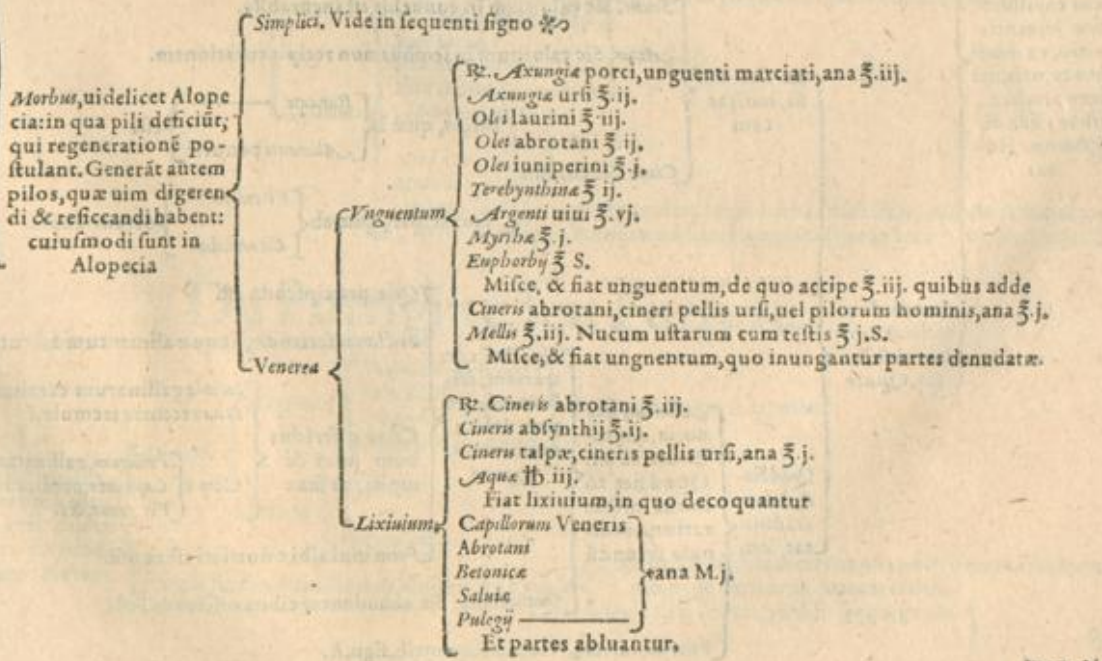 Simplici. Vide in ſequenti ſigno
Morbus, uidelicet Alope
cia: in qua pili deficiũt,
qui regenerationẽ po-
ſtulant. Generãt autem
pilos, quæ uim digeren
di & reſiccandi habent:
cuiuſmodi ſunt in
Alopecia
Venerea
Vnguentum
℞. Axungiæ porci, unguenti marciati, ana ℥.iij.
Axungiæ urſi ℥.ij.
Olei laurini ℥.iij.
Olei abrotani ℥.ij.
Olei iuniperini ℥.j.
Terebynthinæ ℥ ij.
Argenti uiui ℥.vj.
Myrrhæ ℥.j.
Euphorbij ℥ S.
Miſce, & fiat unguentum, de quo accipe ℥.iij. quibus adde
Cineris abrotani, cineri pellis urſi, uel pilorum hominis, ana ℥.j.
Mellis ℥.iij. Nucum uſtarum cum teſtis ℥ j.S.
Miſce, & fiat ungnentum, quo inungantur partes denudatæ.
Lixiuium
℞. Cineris abrotani ℥.iij.
Cineris abſynthij ℥.ij.
Cineris talpæ, cineris pellis urſi, ana ℥.j.
Aquæ ℔.iij.
Fiat lixiuium, in quo decoquantur
Capillorum Veneris
Abrotani
Betonicæ
Saluiæ
Pulegij
ana M.j.
Et partes abluantur.